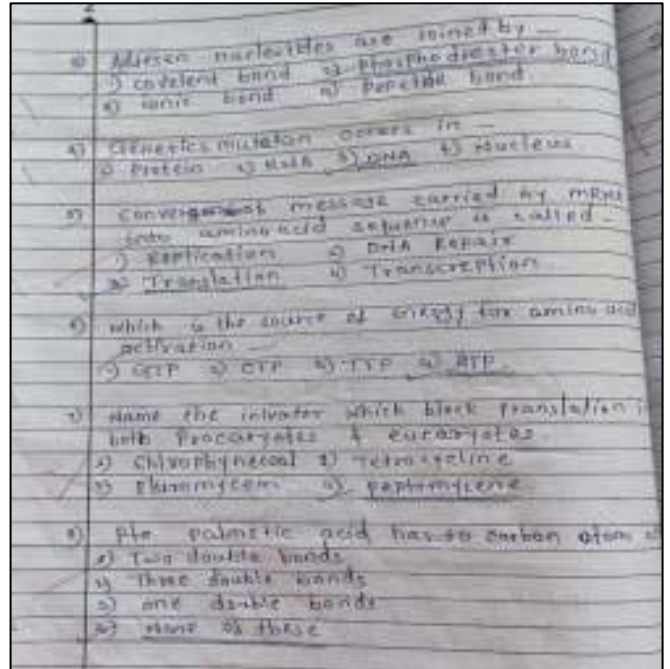 nucleotides are joined by
1) covelent bond 2) Phosphodiester bond
3) ionic bond 4) Peptide bond.
4) Genetics mutation occurs in
1) Protein 2) RNA 3) DNA 4) Nucleus
5) of message carried by mRNA
into aminoacid sequence is called
1) Replication 2) DNA Repair
3) Translation 4) Transcreption
6) which is the source of energy for amino acid
activation
1) GTP 2) CTP 3) TTP 4) ATP
7) Name the which block translation
both Procaryotes & eucaryotes
1) 2)
3) 4)
8) palmetic acid has carbon atom
1) Two double bonds
2) Three double bonds
3) one double bonds
4) None of these